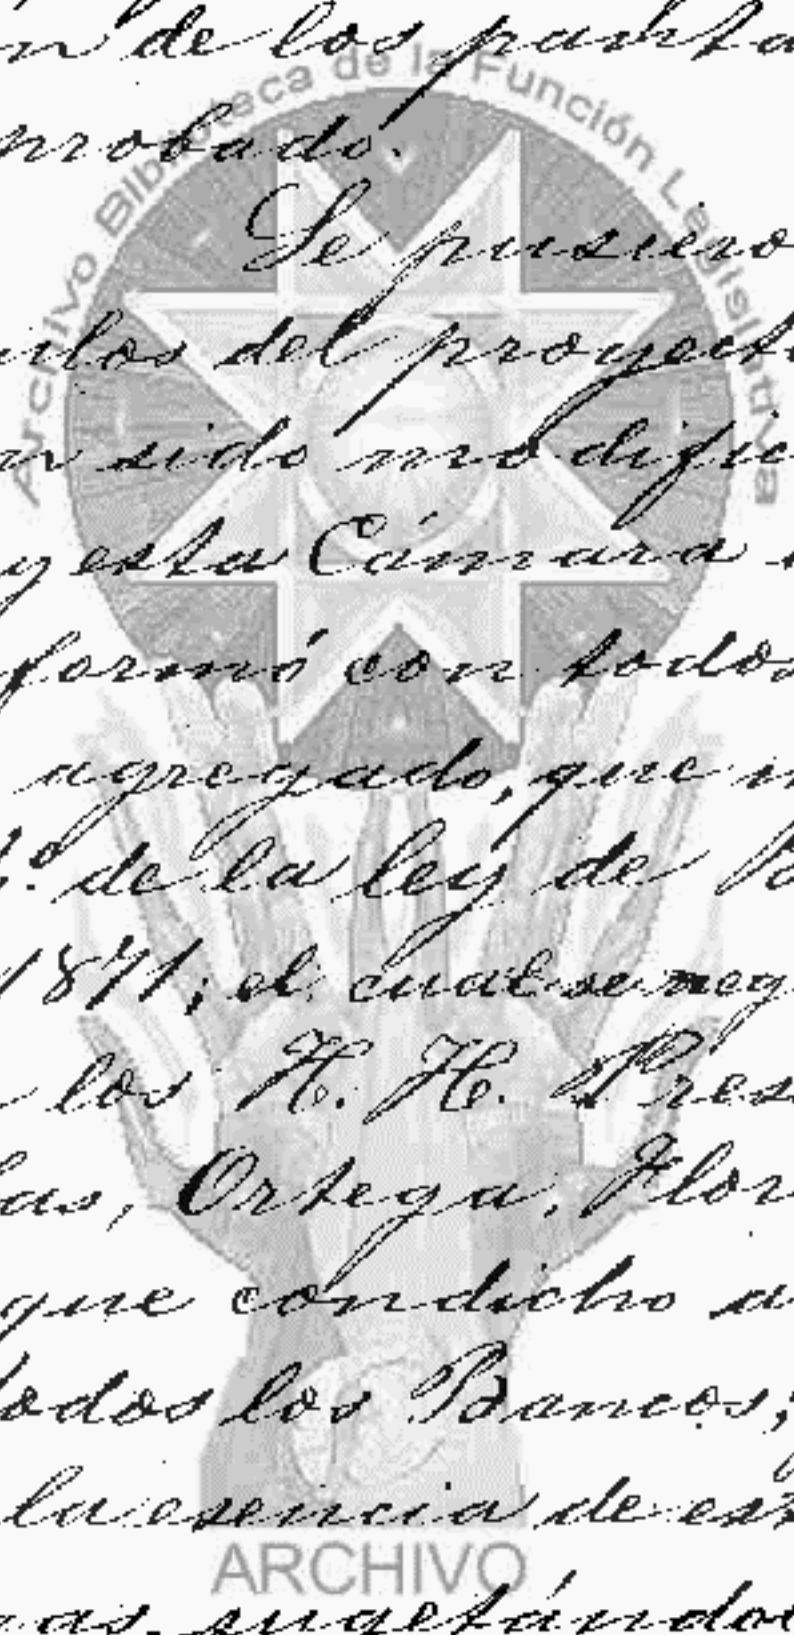 Archivo Biblioteca de la Función Legislativa
n de los punta
probado.
Se pusiero
ulos del proyect
n sido modific
y esta Cámara
formó con todos
agregado, que n
º de la ley de B
1871; el cual se neg
los H. H. Pres
las, Ortega, Flor
que con dicho a
todos los Bancos;
la esencia de es
as, sugetándo
ARCHIVO